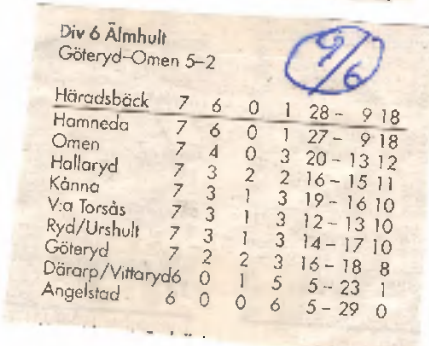 Div 6 Älmhult
9/6
Göteryd–Omen 5–2
Häradsbäck 7 6 0 1 28 – 9 18
Hamneda 7 6 0 1 27 – 9 18
Omen 7 4 0 3 20 – 13 12
Hallaryd 7 3 2 2 16 – 15 11
Kånna 7 3 1 3 19 – 16 10
V:a Torsås 7 3 1 3 12 – 13 10
Ryd/Urshult 7 3 1 3 14 – 17 10
Göteryd 7 2 2 3 16 – 18 8
Därarp/Vittaryd6 0 1 5 5 – 23 1
Angelstad 6 0 0 6 5 – 29 0